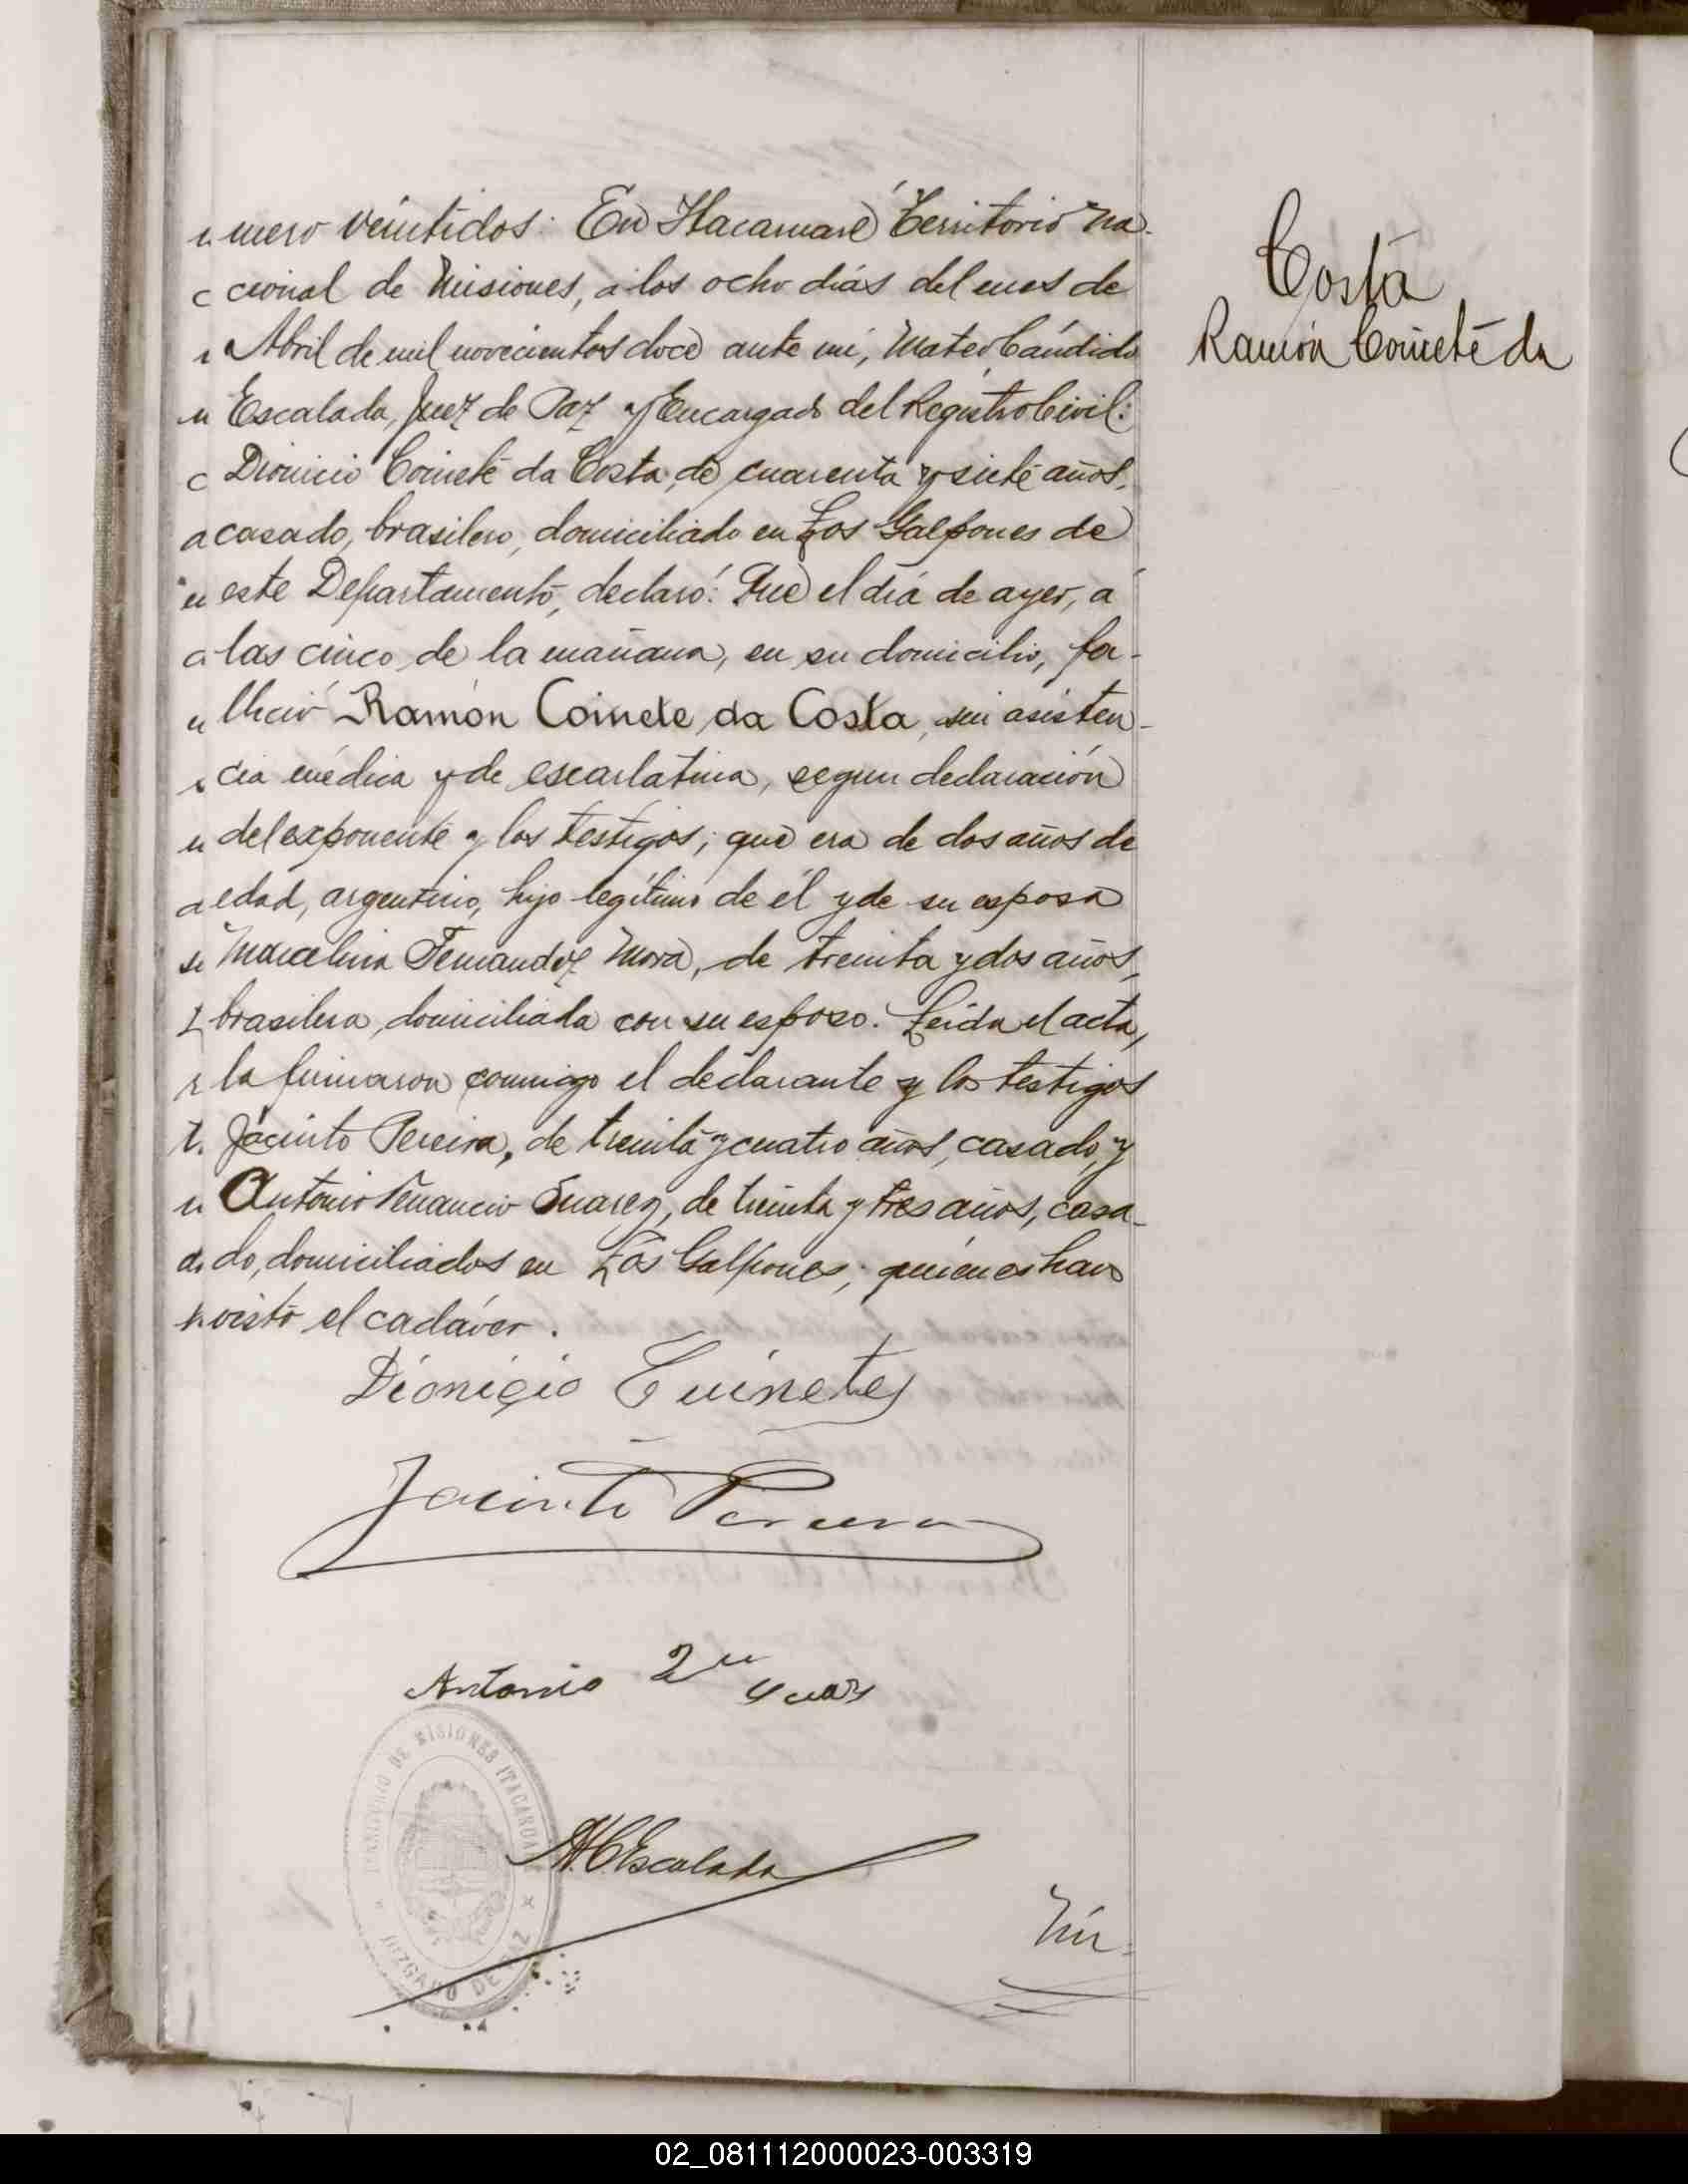 mero veintidos: En Itacaruaré Territorio Na-
cional de Misiones, á los ocho dias del mes de
Abril de mil novecientos doce ante mi, Mateo Cándido
Escalada, Juez de Paz y Encargado del Registro Civil:
Dionicio Coinete da Costa, de cuarenta y siete años,
casado, brasilero, domiciliado en Los Galpones de
este Departamento, declaró: Que el día de ayer, á
las cinco de la mañana, en su domicilio, fa-
lleció Ramón Coinete da Costa, sin asisten-
cia médica y de escarlatina, segun declaración
del exponente y los testigos; que era de dos años de
edad, argentino, hijo legítimo de él y de su esposa
Marcelina Fernandez Mora, de treinta y dos años,
brasilera, domiciliada con su esposo. Leida el acta,
la firmaron conmigo el declarante y los testigos
Jacinto Pereira, de treinta y cuatro años, casado, y
Antonio Venancio Suarez, de treinta y tres años, casa-
do, domiciliados en Los Galpones; quiénes han
visto el cadáver.
Dionicio Cuinete
Jacinto Pereira
Antonio
M.C. Escalada
TERRITORIO DE MISIONES ITACARUARE
JUZGADO DE PAZ
Nú-
Costa
Ramón Coinete da
02_081112000023-003319